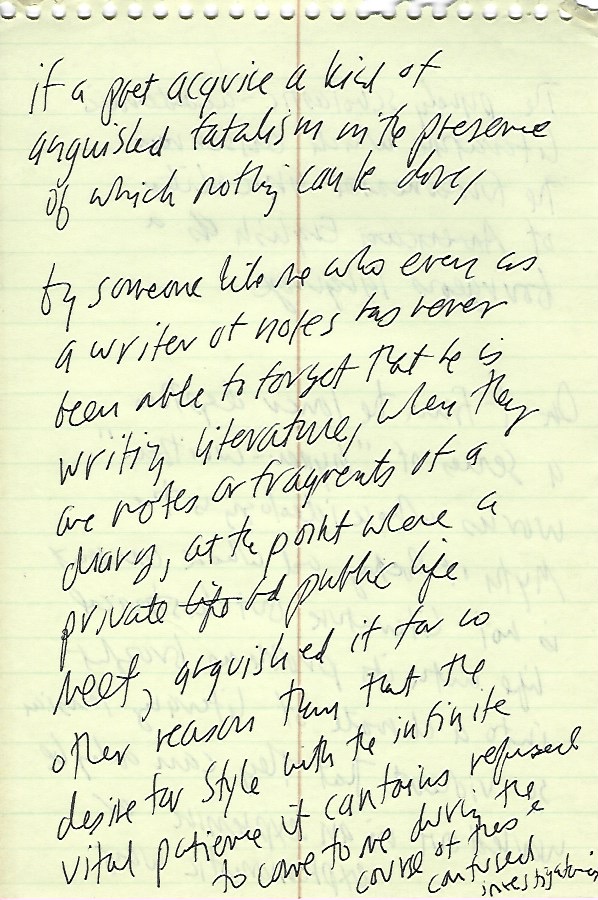 if a poet acquire a kind of
anguished fatalism in the presence
of which nothing can be done,
by someone like me who even as
a writer of notes has never
been able to forget that he is
writing literature, when they
are notes or fragments of a
diary, at the point where a
private life and public life
meet, anguished if for no
other reason than that the
desire for style with the infinite
vital patience it contains refused
to come to me during the
course of these
confused
investigations